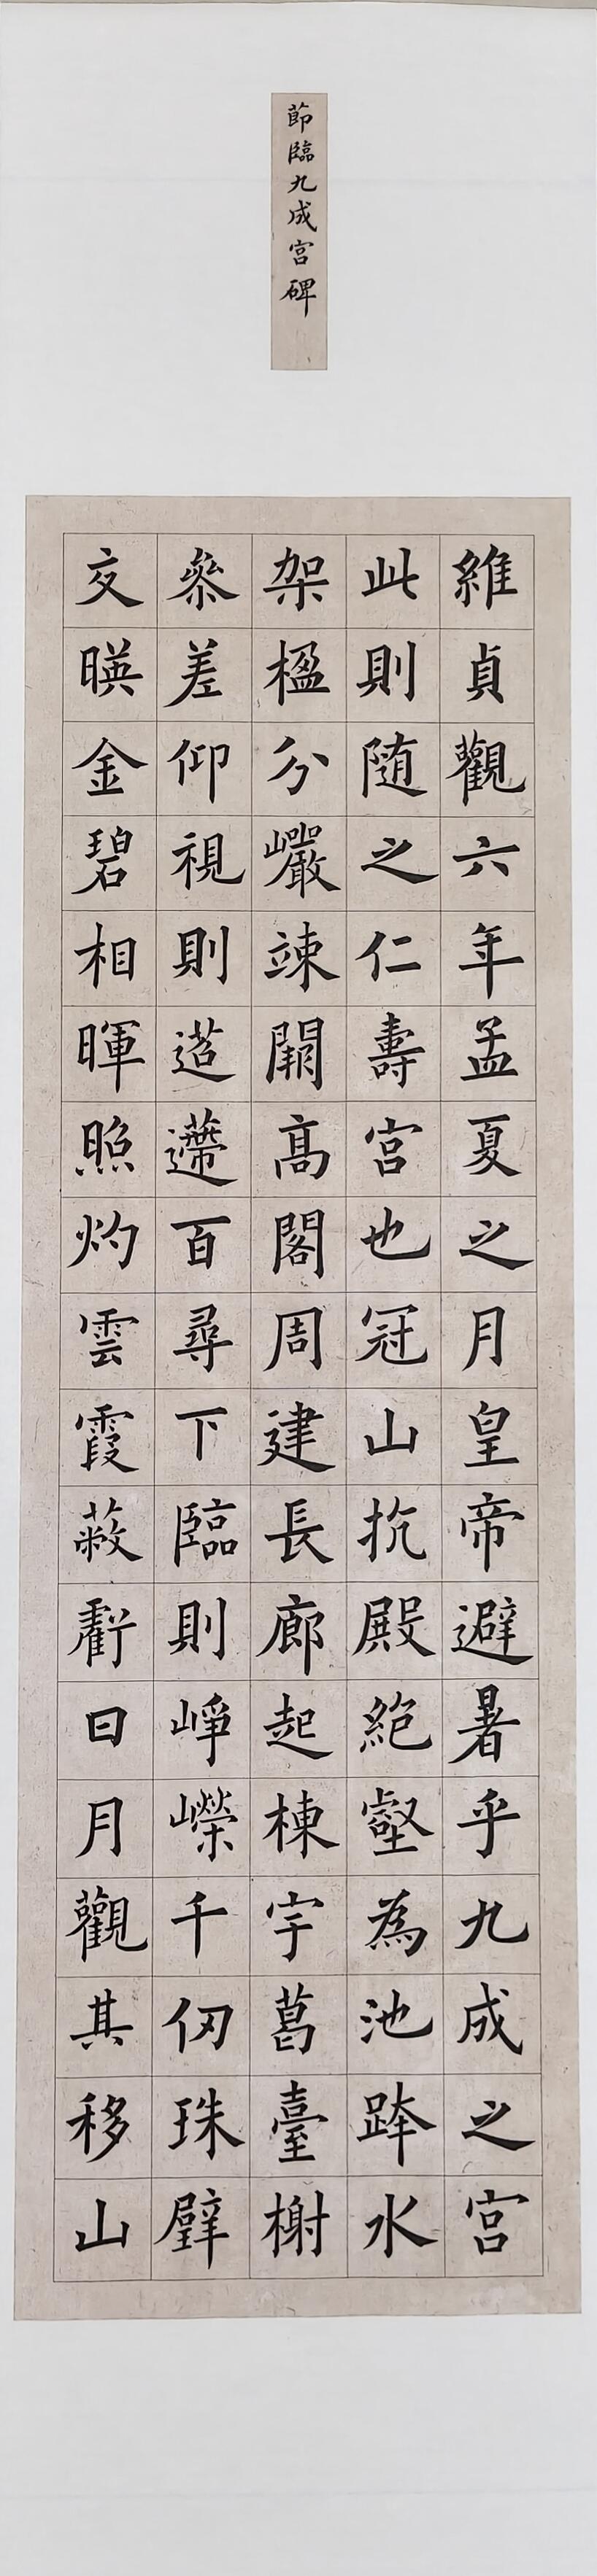 節臨九成宮碑
維貞觀六年孟夏之月皇帝避暑乎九成之宮
此則随之仁壽宮也冠山抗殿絕壑為池跨水
架楹分巖竦闕高閣周建長廊起棟宇葛臺榭
參差仰視則迢遰百尋下臨則崢嶸千仞珠璧
交暎金碧相暉照灼雲霞蔽虧日月觀其移山